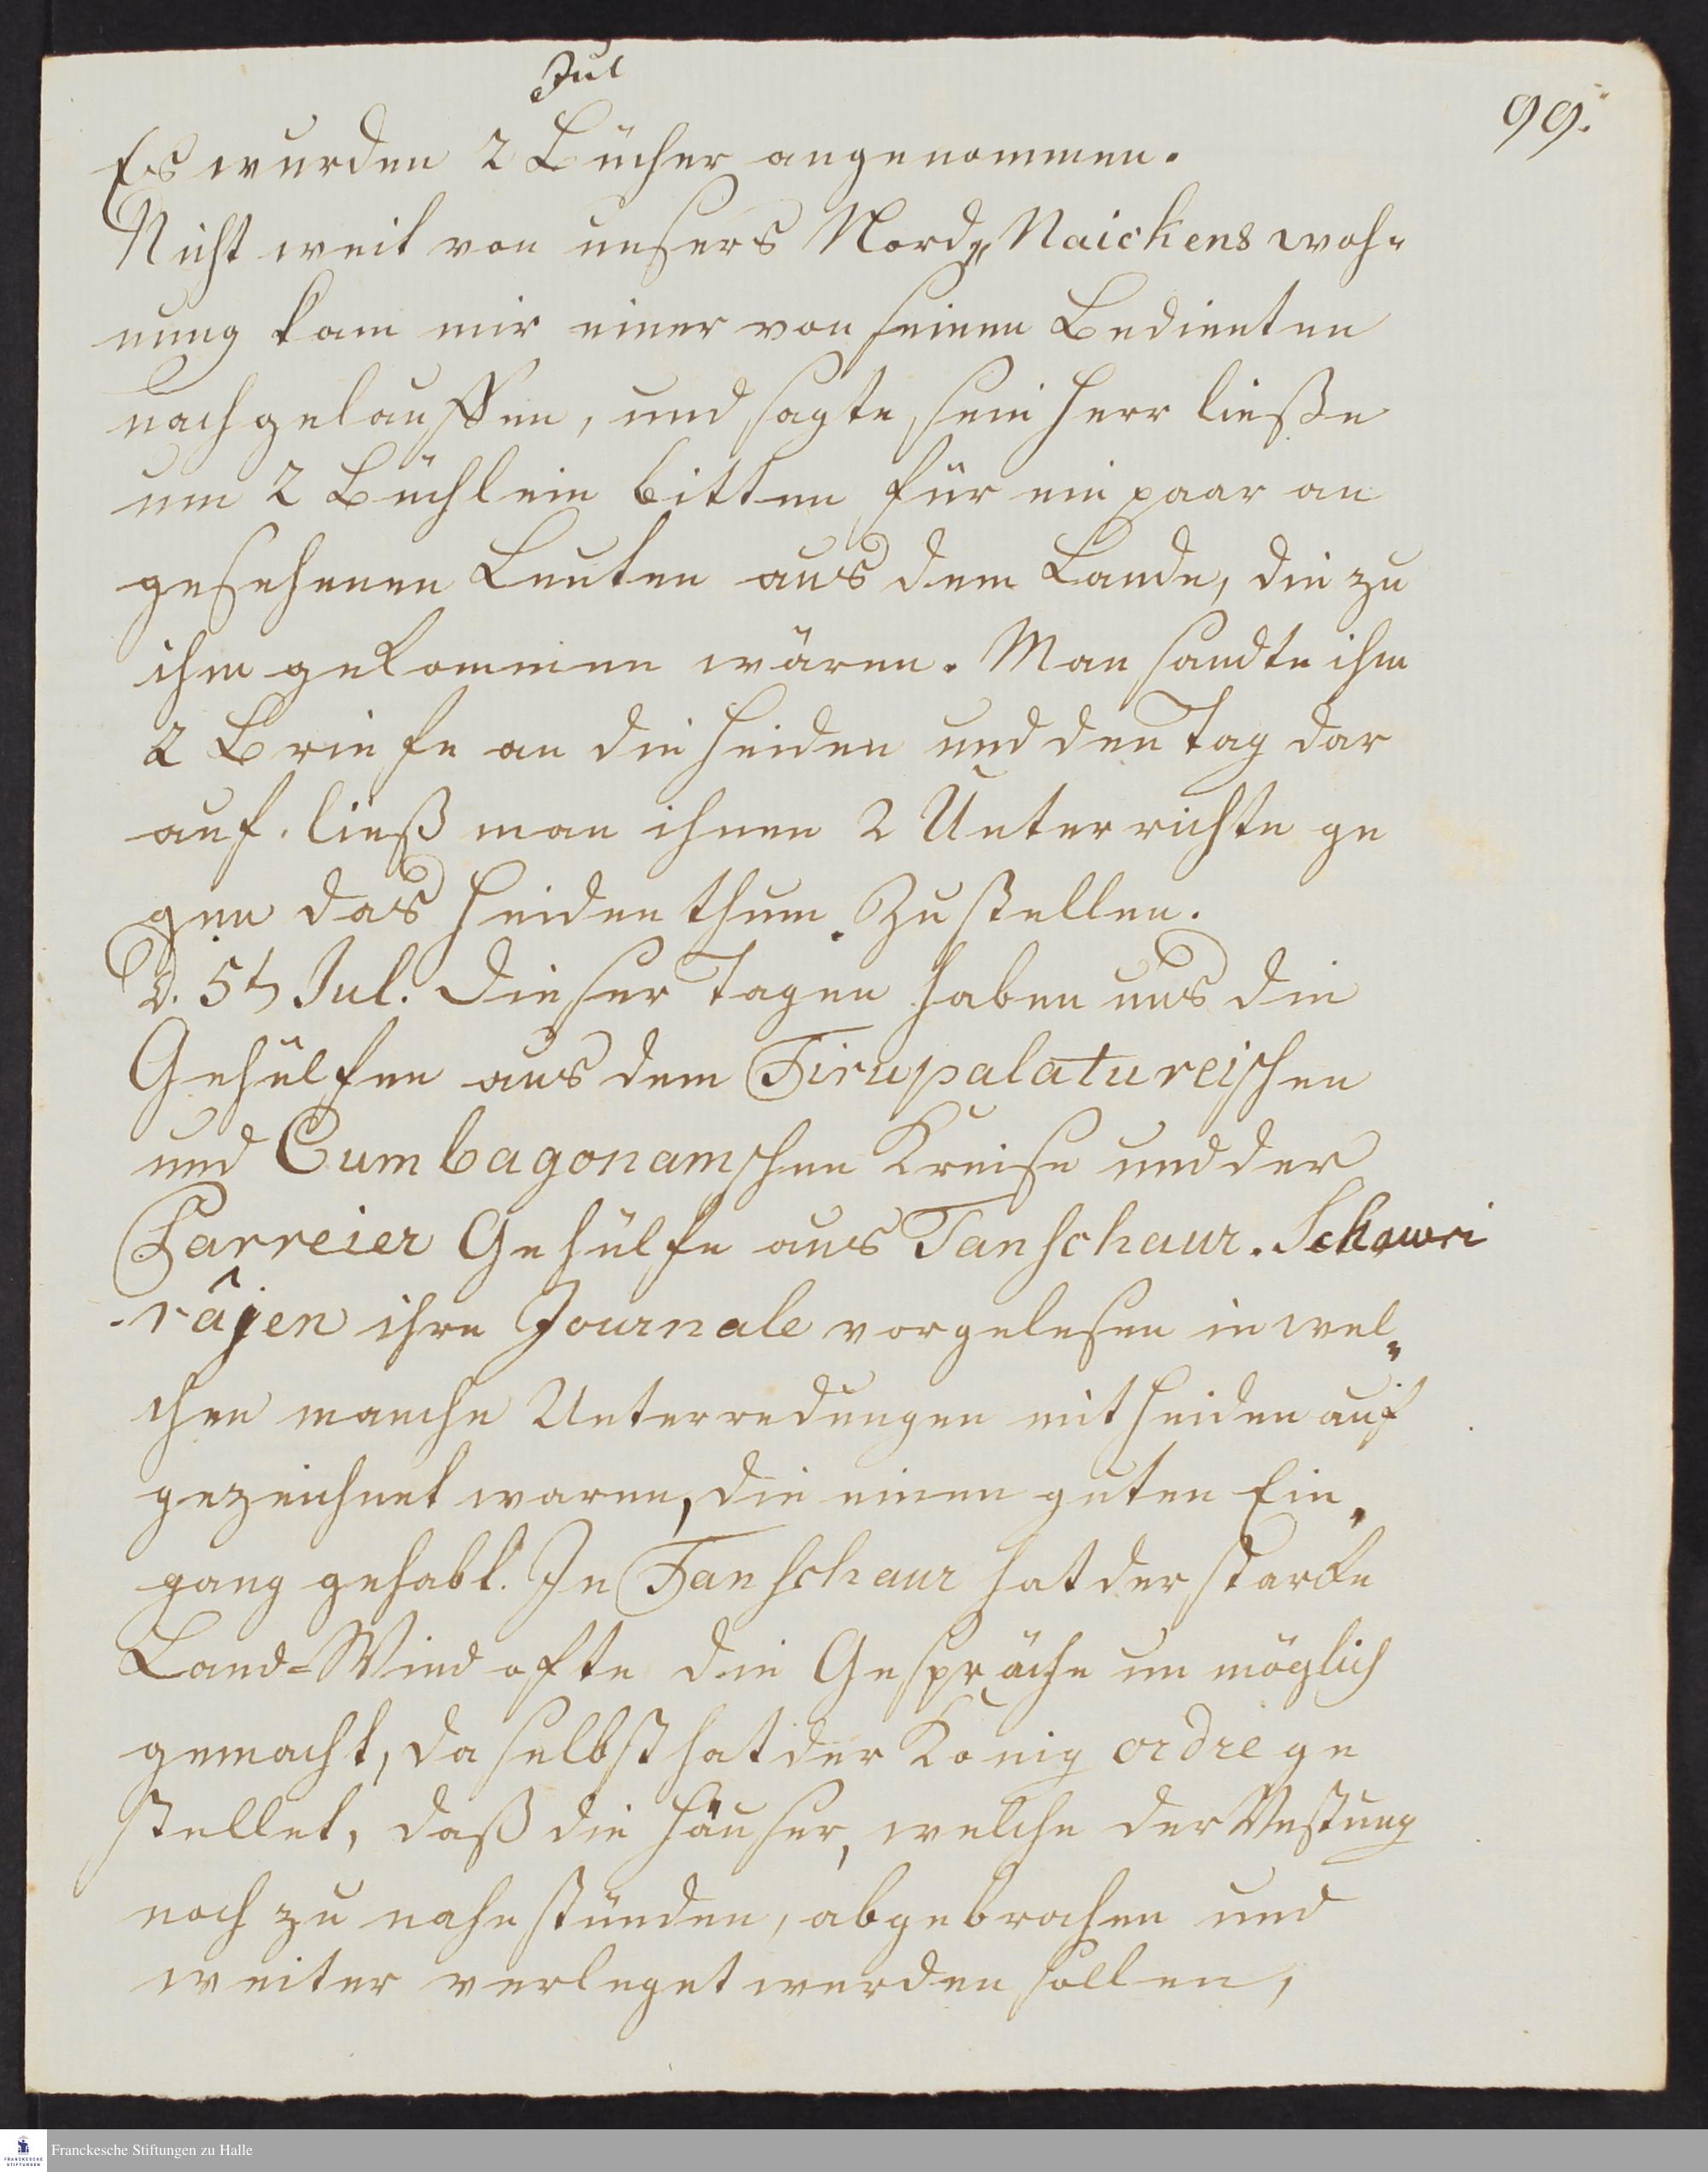 Jul
99.
Es wurden 2 Bücher angenommen.
Nicht weit von unsers Nord„Naickens woh-
nung kam mir einer von seinen Bedienten
nachgelauffen, und sagte, sein Herr ließe
um 2 Büchlein bitten für ein paar an
gesehenen Leuten aus dem Lande, die zu
ihm gekommen wären. Man sandte ihm
2 Briefe an die Heiden und den Tag dar
auf. ließ man ihnen 2 Unterrichte ge
gen das Heidenthum zustellen.
D. 5t Jul. Dieser Tagen haben uns die
Gehülfen aus dem Tirupalatureischen
und Cumbagonamschen Kreise und der
Parreier Gehülfe aus Tanschaur. Schawri
-râjen ihre Journale vorgelesen in wel„
chen manche Unterredungen mit Heiden auf
gezeichnet waren, die einen guten Ein„
gang gehabt. In Tanschaur hat der starke
Land-Wind ofte die Gespräche un möglich
gemacht, daselbst hat der König ordre ge
stellet, daß die Häuser, welche der Vestung
noch zu nahe stünden, abgebrochen und
weiter verleget werden sollen,
Franckesche Stiftungen zu Halle
FRANCKESCHE
STIFTUNGEN